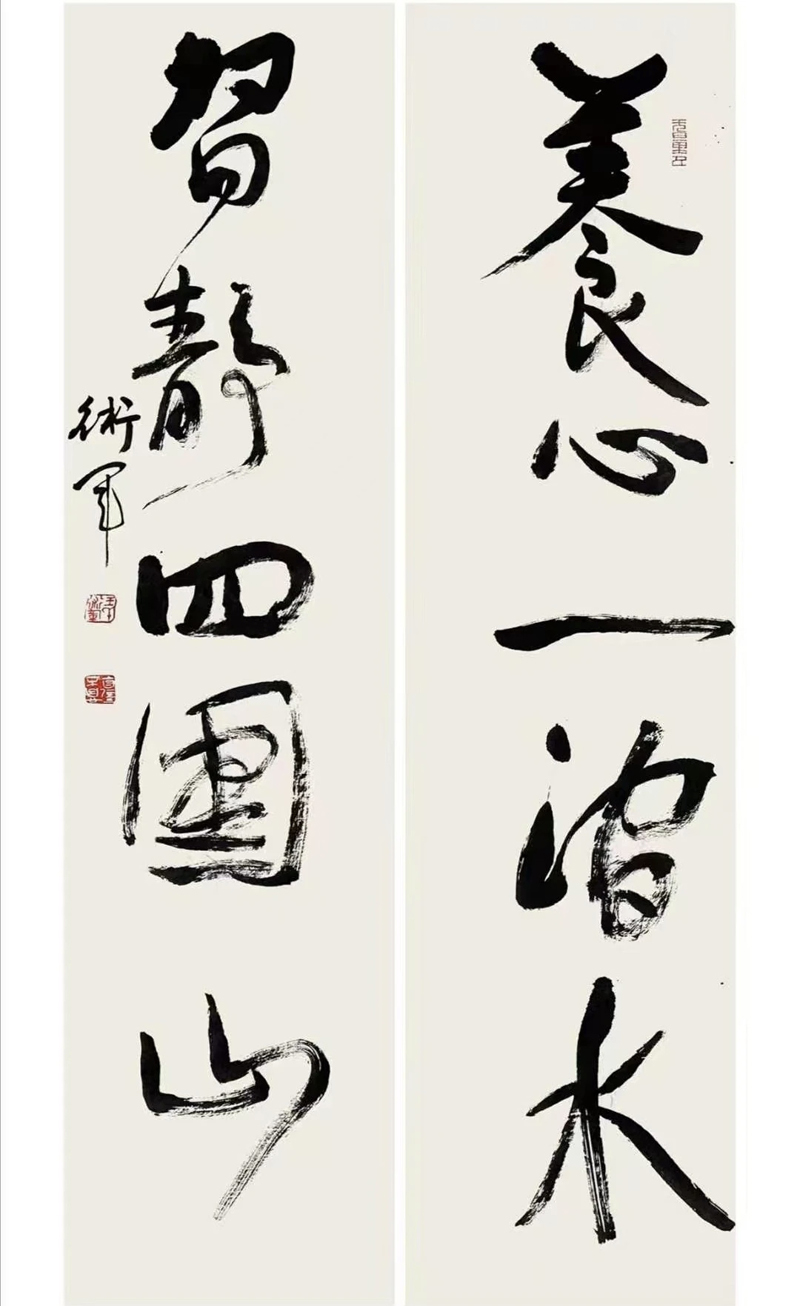 養心一澗水
習靜四圍山
術軍